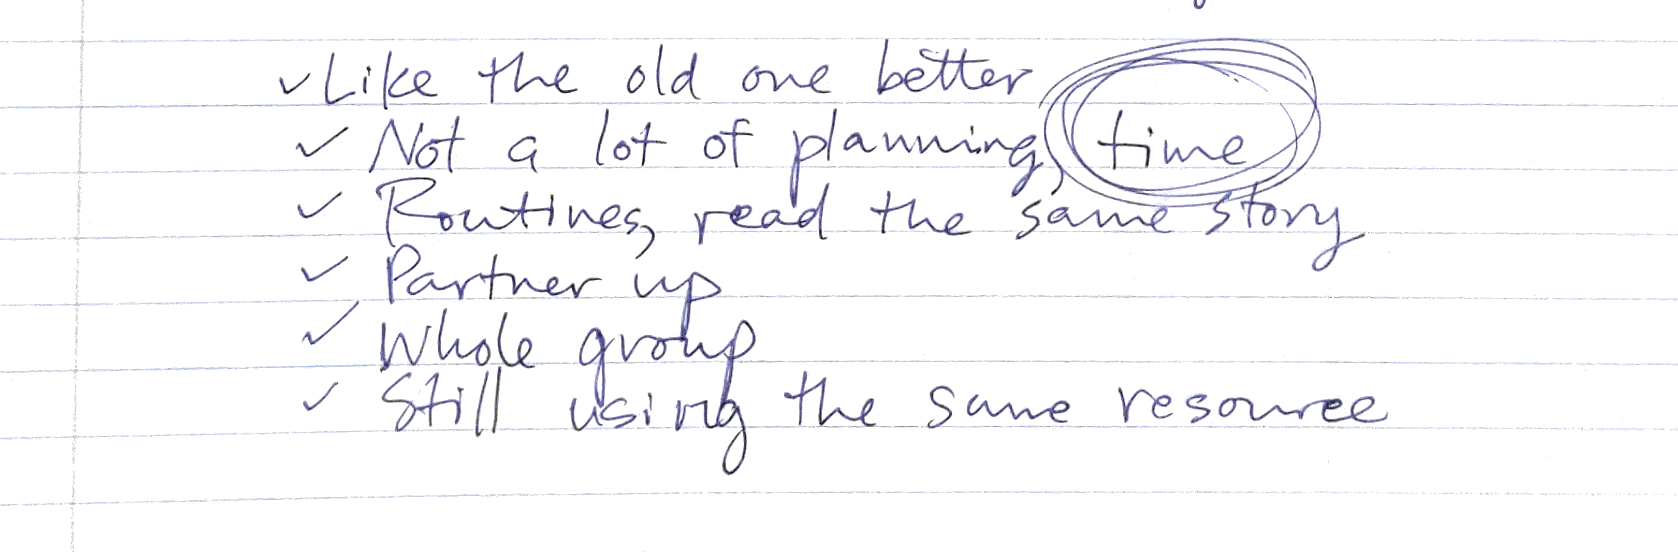 ✓ Like the old one better
✓ Not a lot of planning, time
✓ Routines, read the same story
✓ Partner up
✓ Whole group
✓ Still using the same resource